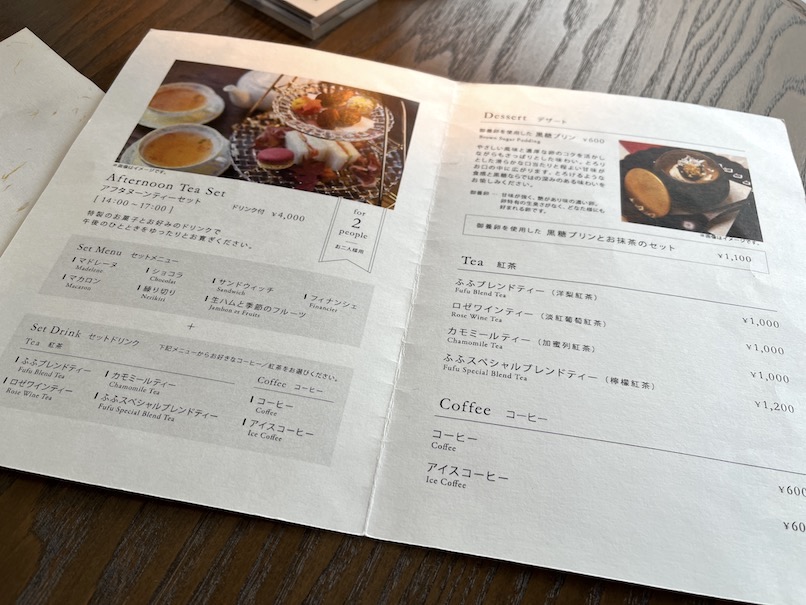 ※画像はイメージです。
Afternoon Tea Set
アフタヌーンティーセット
[ 14:00～17:00 ]
ドリンク付 ¥4,000
特製のお菓子とお好みのドリンクで
午後のひとときをゆったりとお寛ぎください。
for
2
people
お二人様用
Set Menu セットメニュー
マドレーヌ
Madeleine
ショコラ
Chocolat
サンドウィッチ
Sandwich
フィナンシェ
Financier
マカロン
Macaron
練り切り
Nerikiri
生ハムと季節のフルーツ
Jambon et Fruits
+
Set Drink セットドリンク
下記メニューからお好きなコーヒー/紅茶をお選びください。
Tea 紅茶
ふふブレンドティー
Fufu Blend Tea
カモミールティー
Chamomile Tea
ロゼワインティー
Rose Wine Tea
ふふスペシャルブレンドティー
Fufu Special Blend Tea
Coffee コーヒー
コーヒー
Coffee
アイスコーヒー
Ice Coffee
Dessert デザート
御養卵を使用した 黒糖プリン ¥600
Brown Sugar Pudding
やさしい風味と濃厚な卵のコクを活かし
ながらもさっぱりとした味わい。とろり
とした滑らかな口当たりと程よい甘味が
お口の中に広がります。とろけるような
食感と黒糖ならではの深みのある味わいを
お愉しみください。
御養卵 … 甘味が強く、艶があり味の濃い卵。
卵特有の生臭さがなく、どなた様にも
好まれる卵です。
※画像はイメージです。
御養卵を使用した 黒糖プリンとお抹茶のセット ¥1,100
Tea 紅茶
ふふブレンドティー (洋梨紅茶) ¥1,000
Fufu Blend Tea
ロゼワインティー (淡紅葡萄紅茶) ¥1,000
Rose Wine Tea
カモミールティー (加蜜列紅茶) ¥1,000
Chamomile Tea
ふふスペシャルブレンドティー (檸檬紅茶) ¥1,200
Fufu Special Blend Tea
Coffee コーヒー
コーヒー ¥600
Coffee
アイスコーヒー ¥60
Ice Coffee